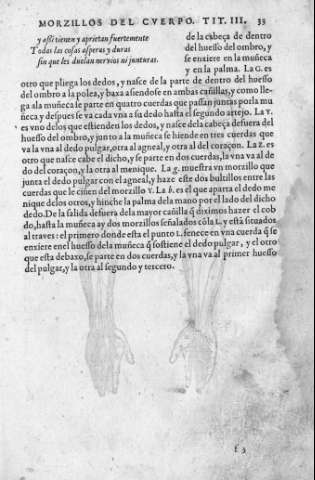 MORZILLOS DEL CVERPO. TIT. III. 33
y assi tienen y aprietan fuertemente
Todas las cosas asperas y duras
sin que les duelan nervios ni junturas.
de la cabeça de dentro
del huesso del ombro, y
se enxiere en la muñeca
y en la palma. La G. es
otro que pliega los dedos, y nasce de la parte de dentro del huesso
del ombro a la polea, y baxa asiendose en ambas cañillas, y como lle-
ga ala muñeca se parte en quatro cuerdas que passan juntas por la mu
ñeca y despues se va cada vna a su dedo hasta el segundo artejo. La Y.
es vno delos que estienden los dedos, y nasce dela cabeça defuera del
huesso del ombro, y junto a la muñeca se hiende en tres cuerdas que
va la vna al dedo pulgar, otra al agneal, y otra al del coraçon. La Z. es
otro que nasce cabe el dicho, y se parte en dos cuerdas, la vna va al de
do del coraçon, y la otra al menique. La g. muestra vn morzillo que
junta el dedo pulgar con el agneal, y haze este dos bultillos entre las
cuerdas que le ciñen del morzillo Y. La h. es el que aparta el dedo me
nique delos otros, y hinche la palma dela mano por el lado del dicho
dedo. De la salida defuera dela mayor cañilla q̃ diximos hazer el cob
do, hasta la muñeca ay dos morzillos señalados cõ la L. y està situados
al traves: el primero donde esta el punto L. fenece en vna cuerda q̃ se
enxiere en el huesso dela muñeca q̃ sostiene el dedo pulgar, y el otro
que esta debaxo, se parte en dos cuerdas, y la vna va al primer huesso
del pulgar, y la otra al segundo y tercero.
f 3